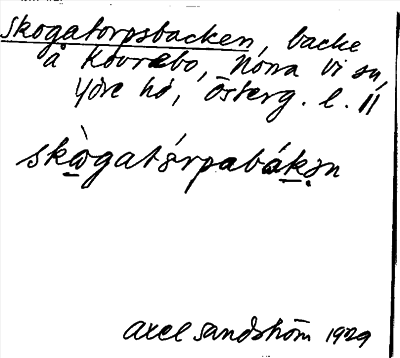 Skogatorpsbacken, backe
å Kovrabo, Norra Vi sn,
Ydre hd, Österg. l. II
skògatórpabákən
Axel Sandström 1929